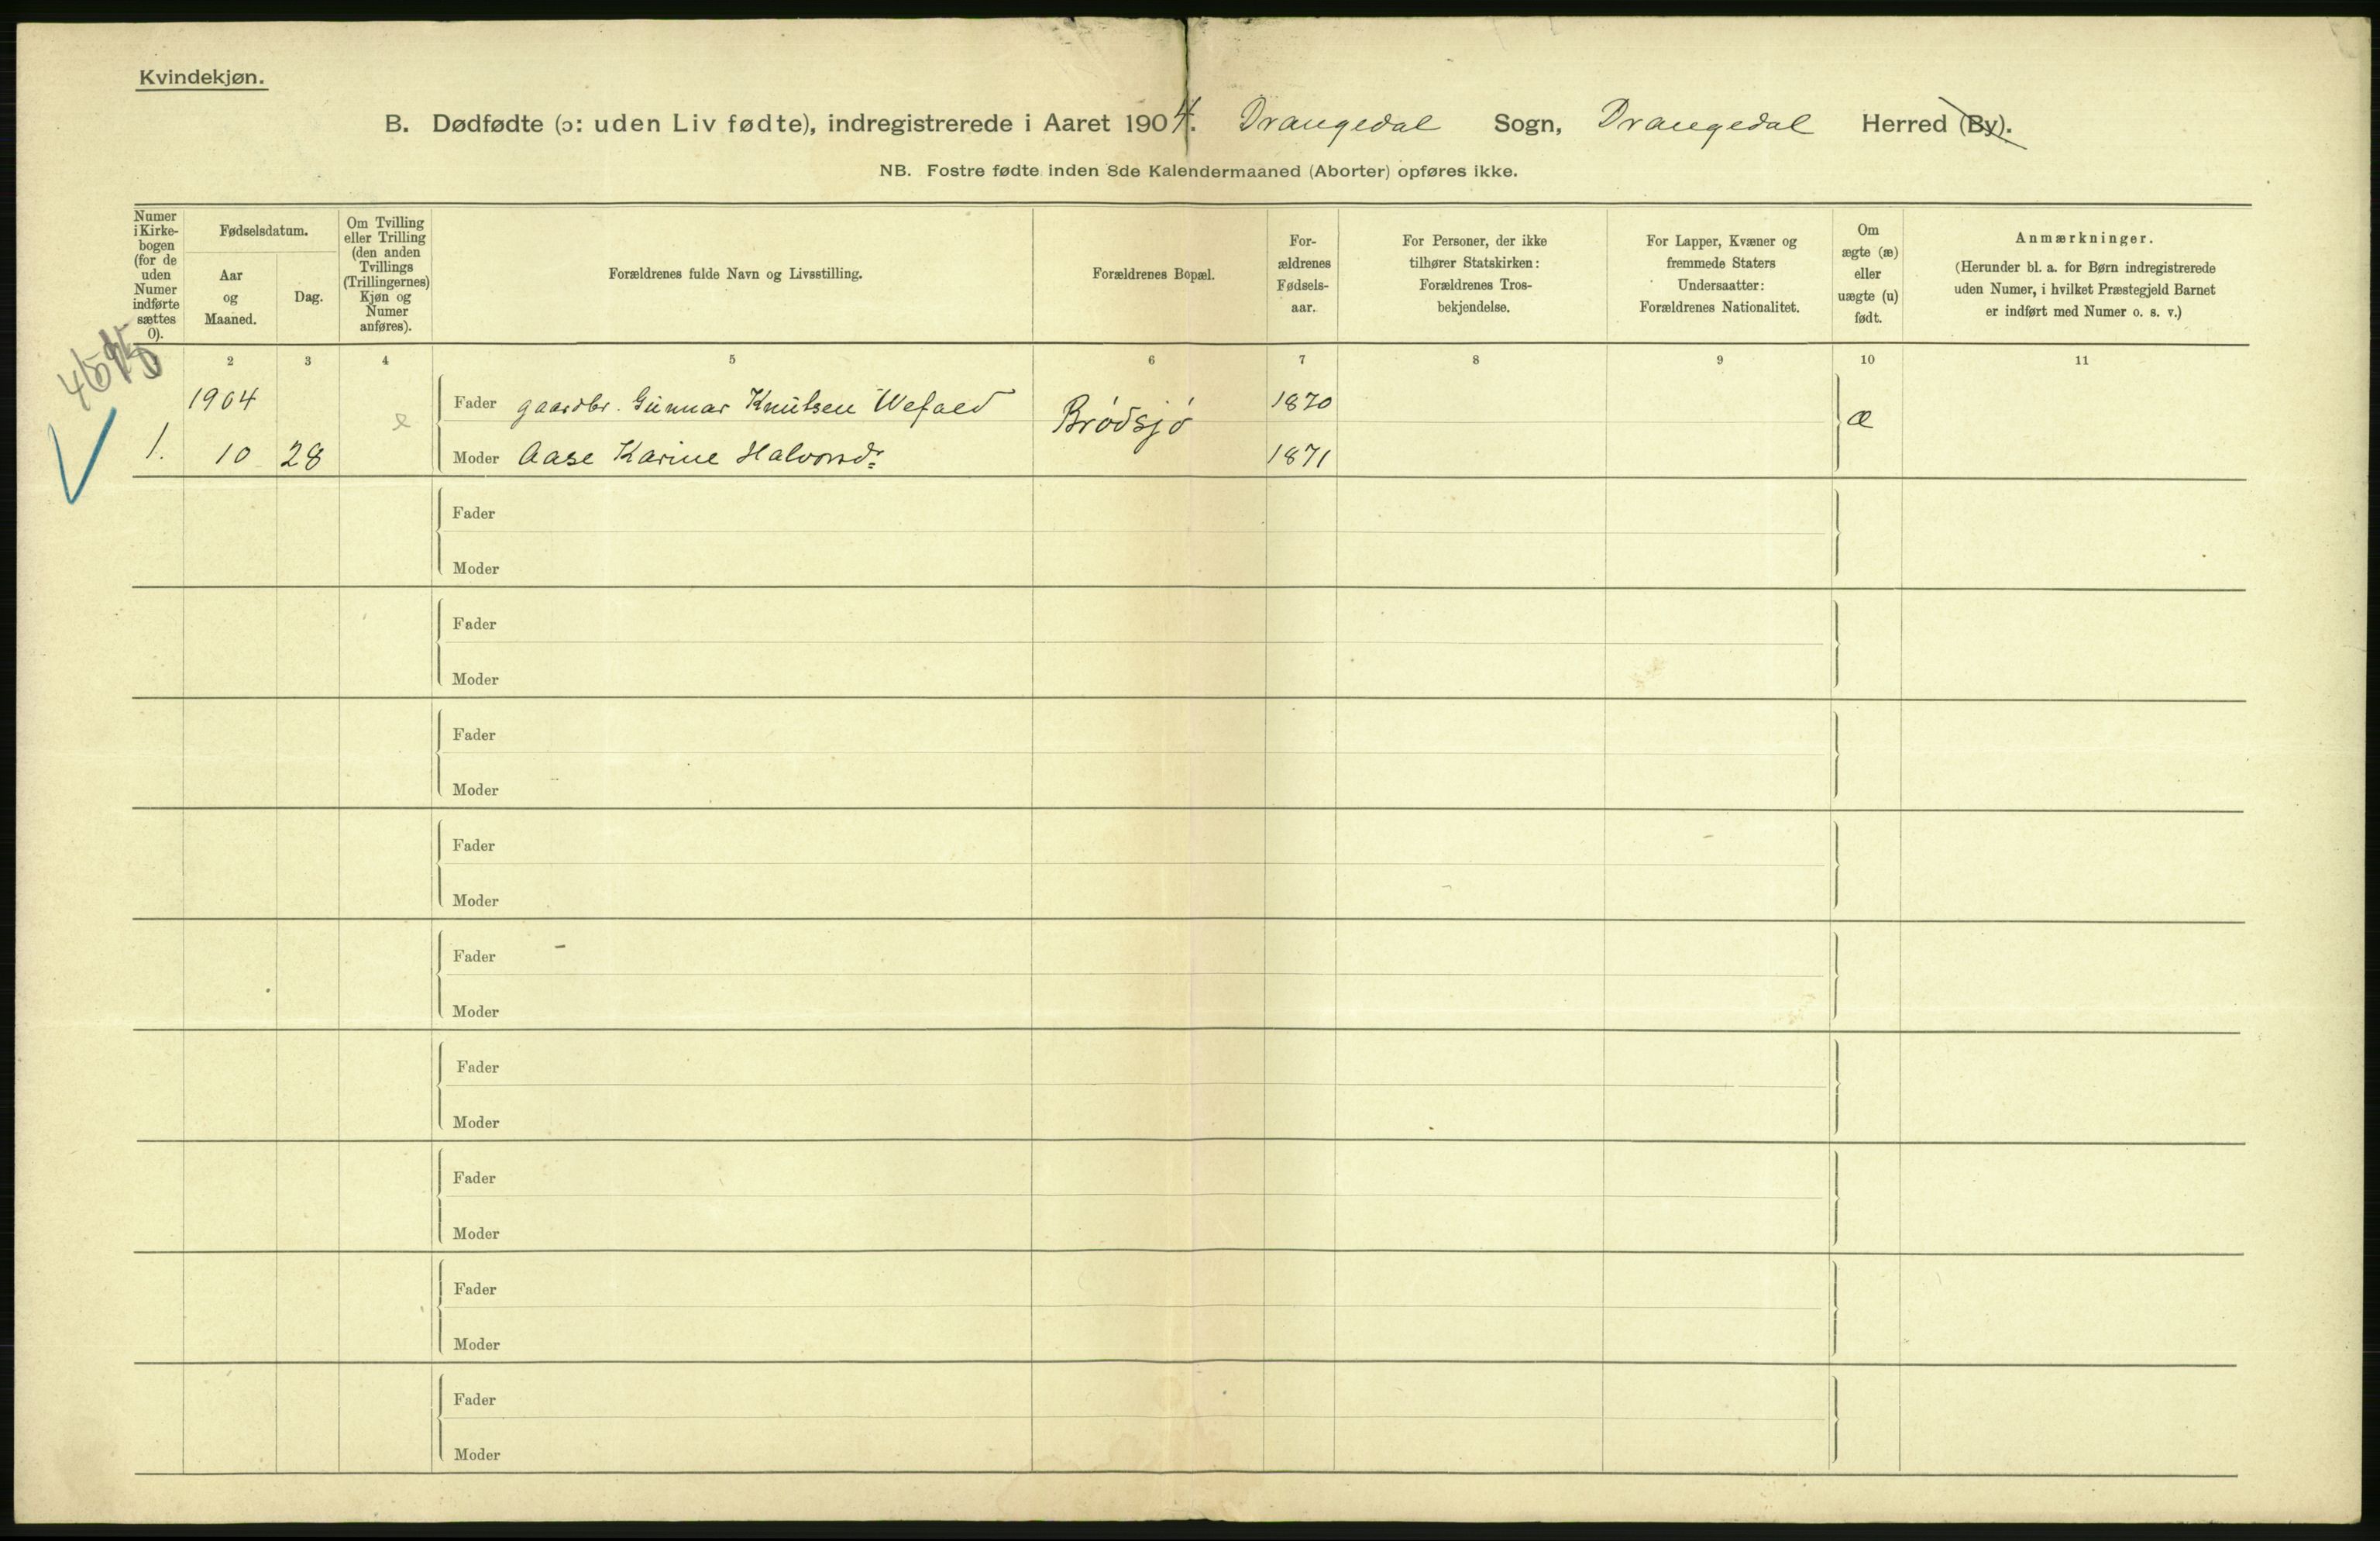 Kvindekjøn.
B. Dødfødte (ɔ: uden Liv fødte), indregistrerede i Aaret 1904. Drangedal Sogn, Drangedal Herred (By).
NB. Fostre fødte inden 8de Kalendermaaned (Aborter) opføres ikke.
Numer
i Kirke-
bogen
(for de
uden
Numer
indførte
sættes
0).
Fødselsdatum.
Aar
og
Maaned.
Dag.
Om Tvilling
eller Trilling
(den anden
Tvillings
(Trillingernes)
Kjøn og
Numer
anføres).
Forældrenes fulde Navn og Livsstilling.
Forældrenes Bopæl.
For-
ældrenes
Fødsels-
aar.
For Personer, der ikke
tilhører Statskirken:
Forældrenes Tros-
bekjendelse.
For Lapper, Kvæner og
fremmede Staters
Undersaatter:
Forældrenes Nationalitet.
Om
ægte (æ)
eller
uægte (u)
født.
Anmærkninger.
(Herunder bl. a. for Børn indregistrerede
uden Numer, i hvilket Præstegjeld Barnet
er indført med Numer o. s. v.)
2 3 4 5 6 7 8 9 10 11
1904 Fader gaardbr. Gunnar Knutsen Wefald Brødsjø 1870 æ
1. 10 28 Moder Aase Karine Halvorsd: 1871
Fader
Moder
Fader
Moder
Fader
Moder
Fader
Moder
Fader
Moder
Fader
Moder
Fader
Moder
Fader
Moder
Fader
Moder